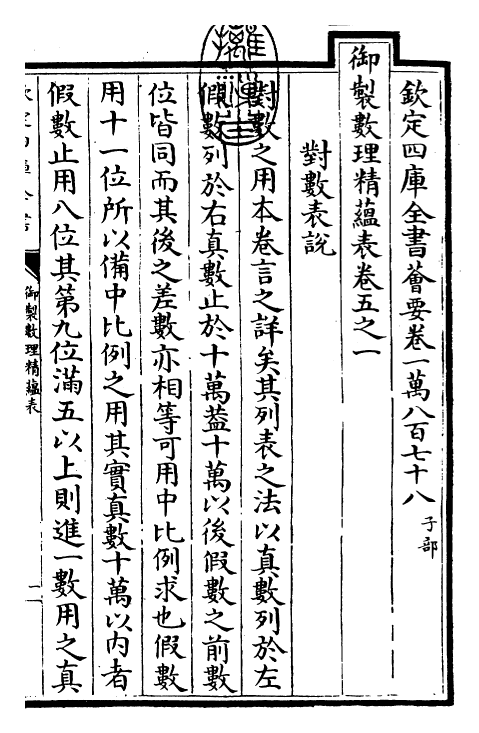 欽定四庫全書薈要卷一萬八百七十八 子部
御製數理精蘊表卷五之一
對數表說
對數之用本卷言之詳矣其列表之法以真數列於左
假數列於右真數止於十萬葢十萬以後假數之前數
位皆同而其後之差數亦相等可用中比例求也假數
用十一位所以備中比例之用其實真數十萬以內者
假數止用八位其第九位滿五以上則進一數用之真
御製數理精蘊表